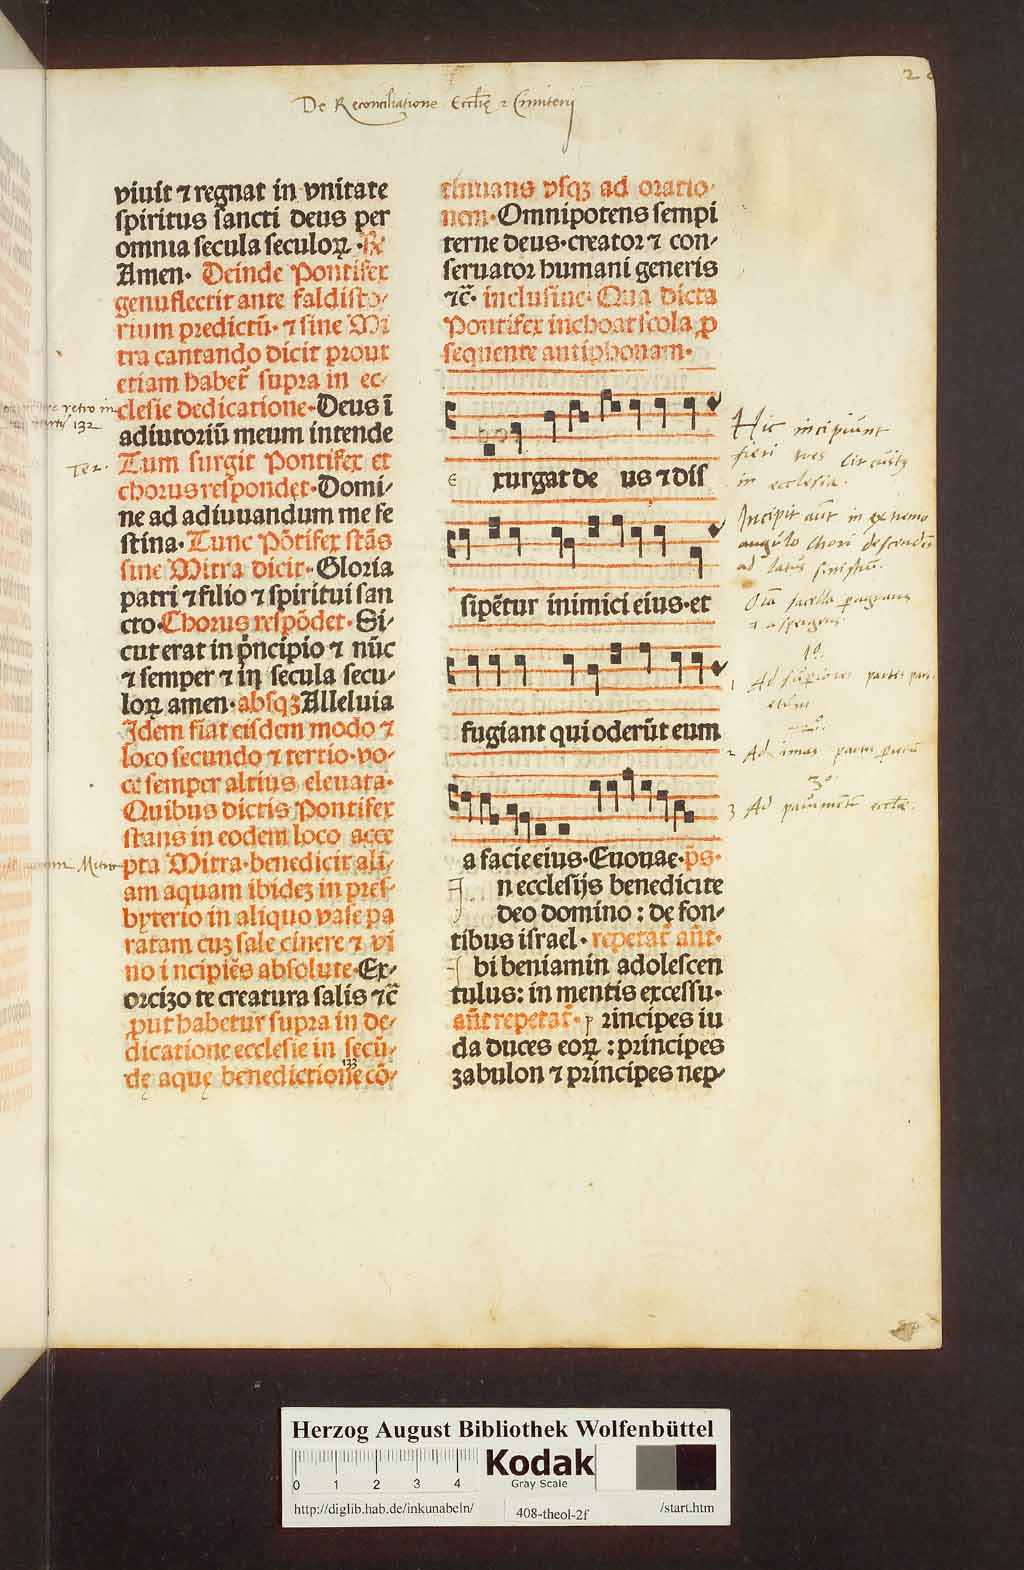 De Reconciliatione Eccl̃ię ⁊ Cimiterij
viuit ⁊ regnat in vnitate
spiritus sancti deus per
omnia secula seculoꝝ · ℟
Amen· Deinde Pontifex
genuflectit ante faldisto⸗
rium predictū· ⁊ sine Mi
tra cantando dicit prout
etiam habet᷑ supra in ec⸗
clesie dedicatione·Deus ī
adiutoriū meum intende
Tum surgit Pontifex et
chorus respondet·Domi⸗
ne ad adiuuandum me fe
stina·Tunc Põtifex stãs
sine Mitra dicit·Gloria
patri ⁊ filio ⁊ spiritui san
cto·Chorus respõdet·Si⸗
cut erat in pͥncipio ⁊ nūc
⁊ semper ⁊ in secula secu⸗
loꝝ amen·absqꝫ Alleluia
Idem fiat eisdem modo ⁊
loco secundo ⁊ tertio·vo⸗
ce semper altius eleuata·
Quibus dictis Pontifex
stans in eodem loco acce
pta Mitra·benedicit ali⸗
am aquam ibideꝫ in pres⸗
byterio in aliquo vase pa
ratam cuꝫ sale cinere ⁊ vi
no i ncipiẽs absolute·Ex⸗
orcizo te creatura salis ⁊c̃
ꝓut habetur supra in de⸗
dicatione ecclesie in secũ⸗
dę aquę benedictione cõ⸗
133
retro in
132
Ter.
Mitra
tinuans vsqꝫ ad oratio⸗
nem·Omnipotens sempi
terne deus·creator ⁊ con⸗
seruator humani generis
⁊c̃· inclusiue· Qua dicta
Pontifex inchoat scola ꝓ
sequente antiphonam·
e xurgat de us ⁊ dis
sipẽtur inimici eius·et
fugiant qui oderūt eum
a facie eius·Euouae·p̃s·
I n ecclesijs benedicite
deo domino : de fon⸗
tibus israel· repetat᷑ añt·
I bi beniamin adolescen
tulus: in mentis excessu·
añt repetat᷑· p rincipes iu
da duces eoꝝ : principes
zabulon ⁊ principes nep⸗
Hic incipiunt
fieri tres circuitꝰ
in ecclesia.
Incipit aūt in extremo
angulo chori
ad latus sinistrū.
1º.
1 Ad superiores partes
2º.
2 Ad imas partes
3º.
3 Ad pauimentū ecclię.
Herzog August Bibliothek Wolfenbüttel
0 1 2 3 4
Kodak
Gray Scale
http://diglib.hab.de/inkunabeln/
408-theol-2f
/start.htm